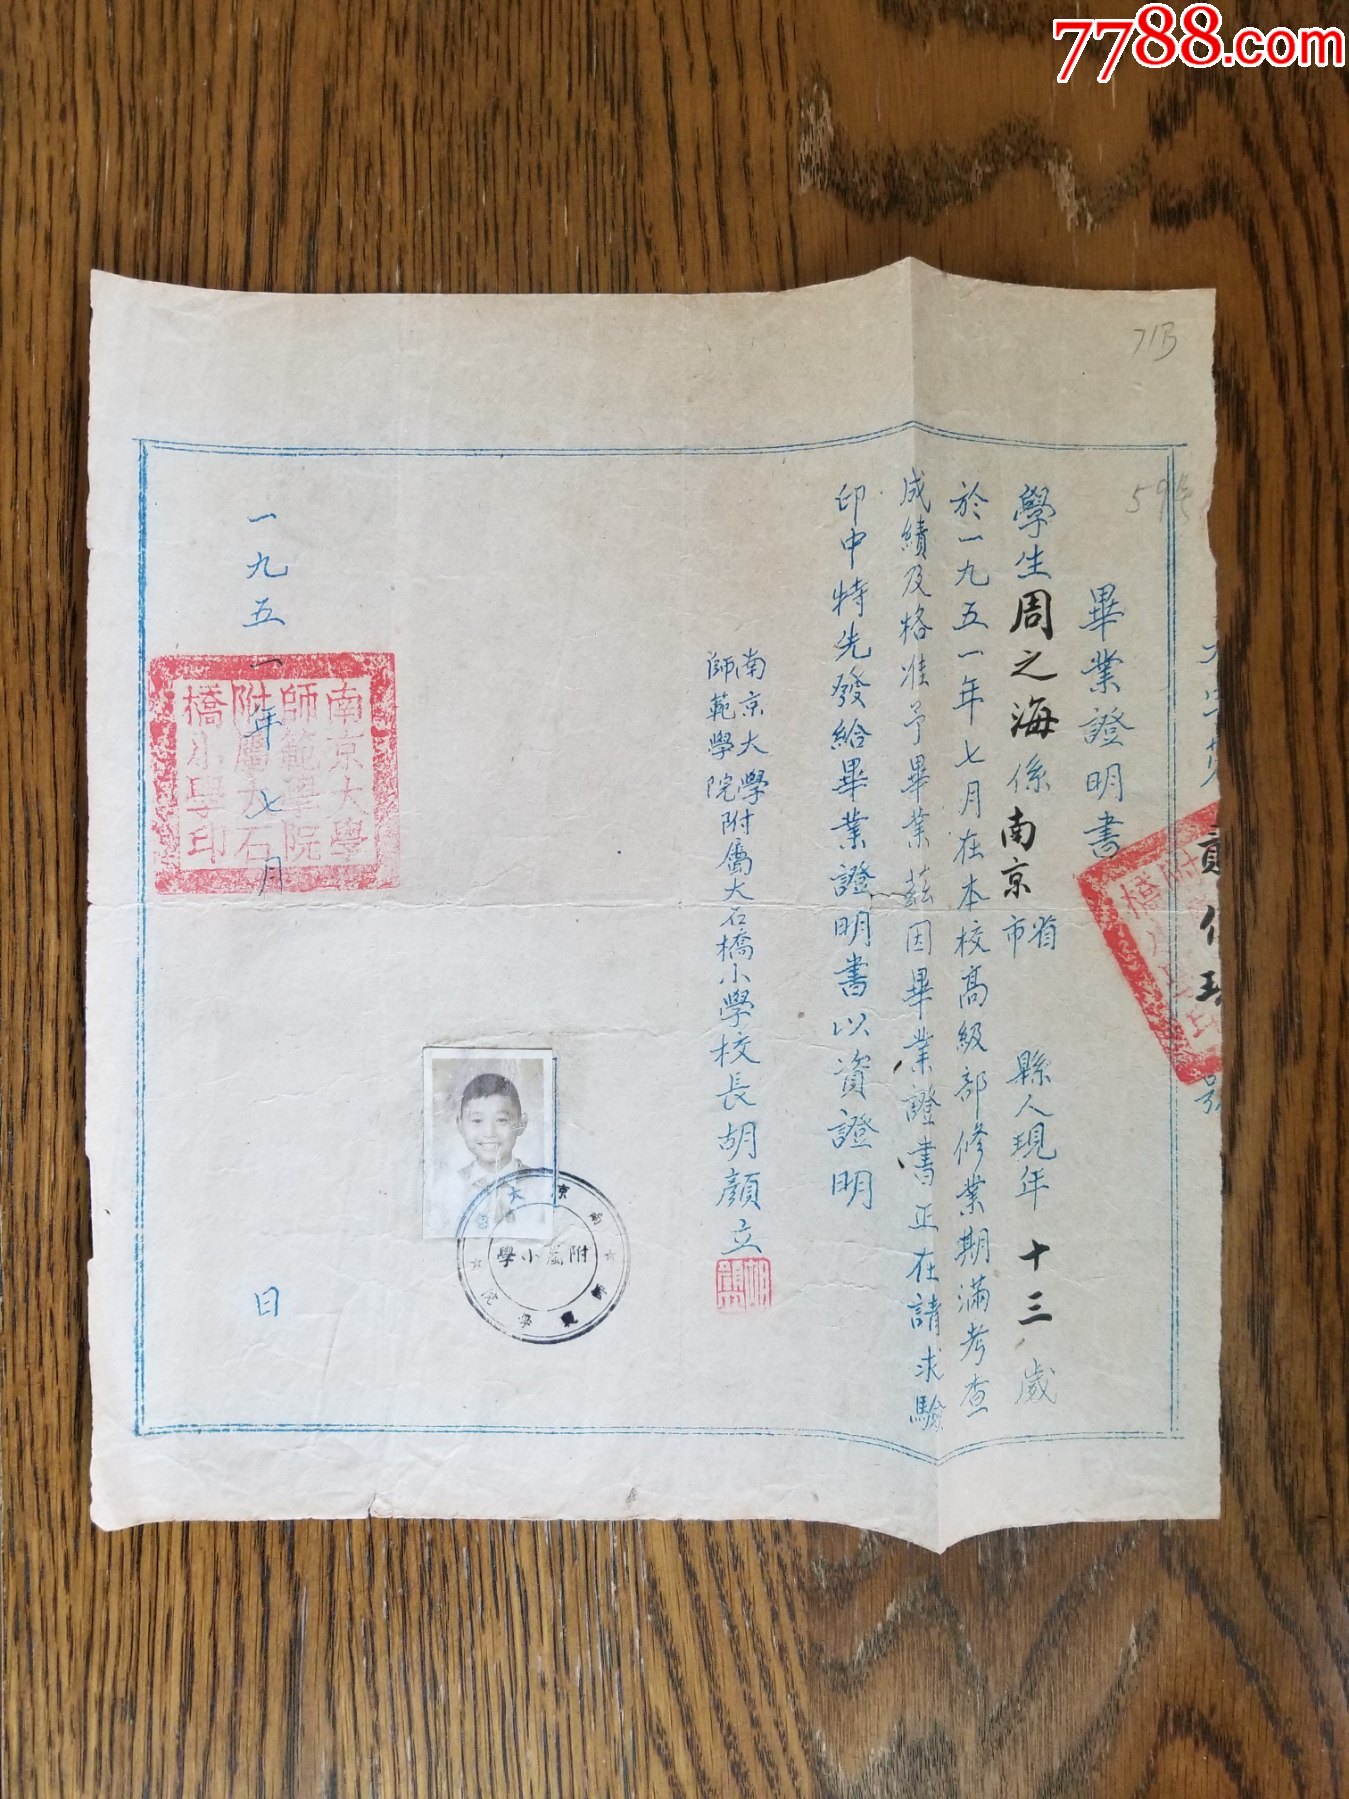 7788.com
71B
畢業證明書
學生周之海係南京省市 縣人現年十三歲
於一九五一年七月在本校高級部修業期滿考查
成績及格准予畢業茲因畢業證書正在請求驗
印中特先發給畢業證明書以資證明
南京大學
師範學院
附屬大石橋小學校長胡顏立
一九五一年七月 日
南京大學
師範學院
附屬大石
橋小學印
附屬小學